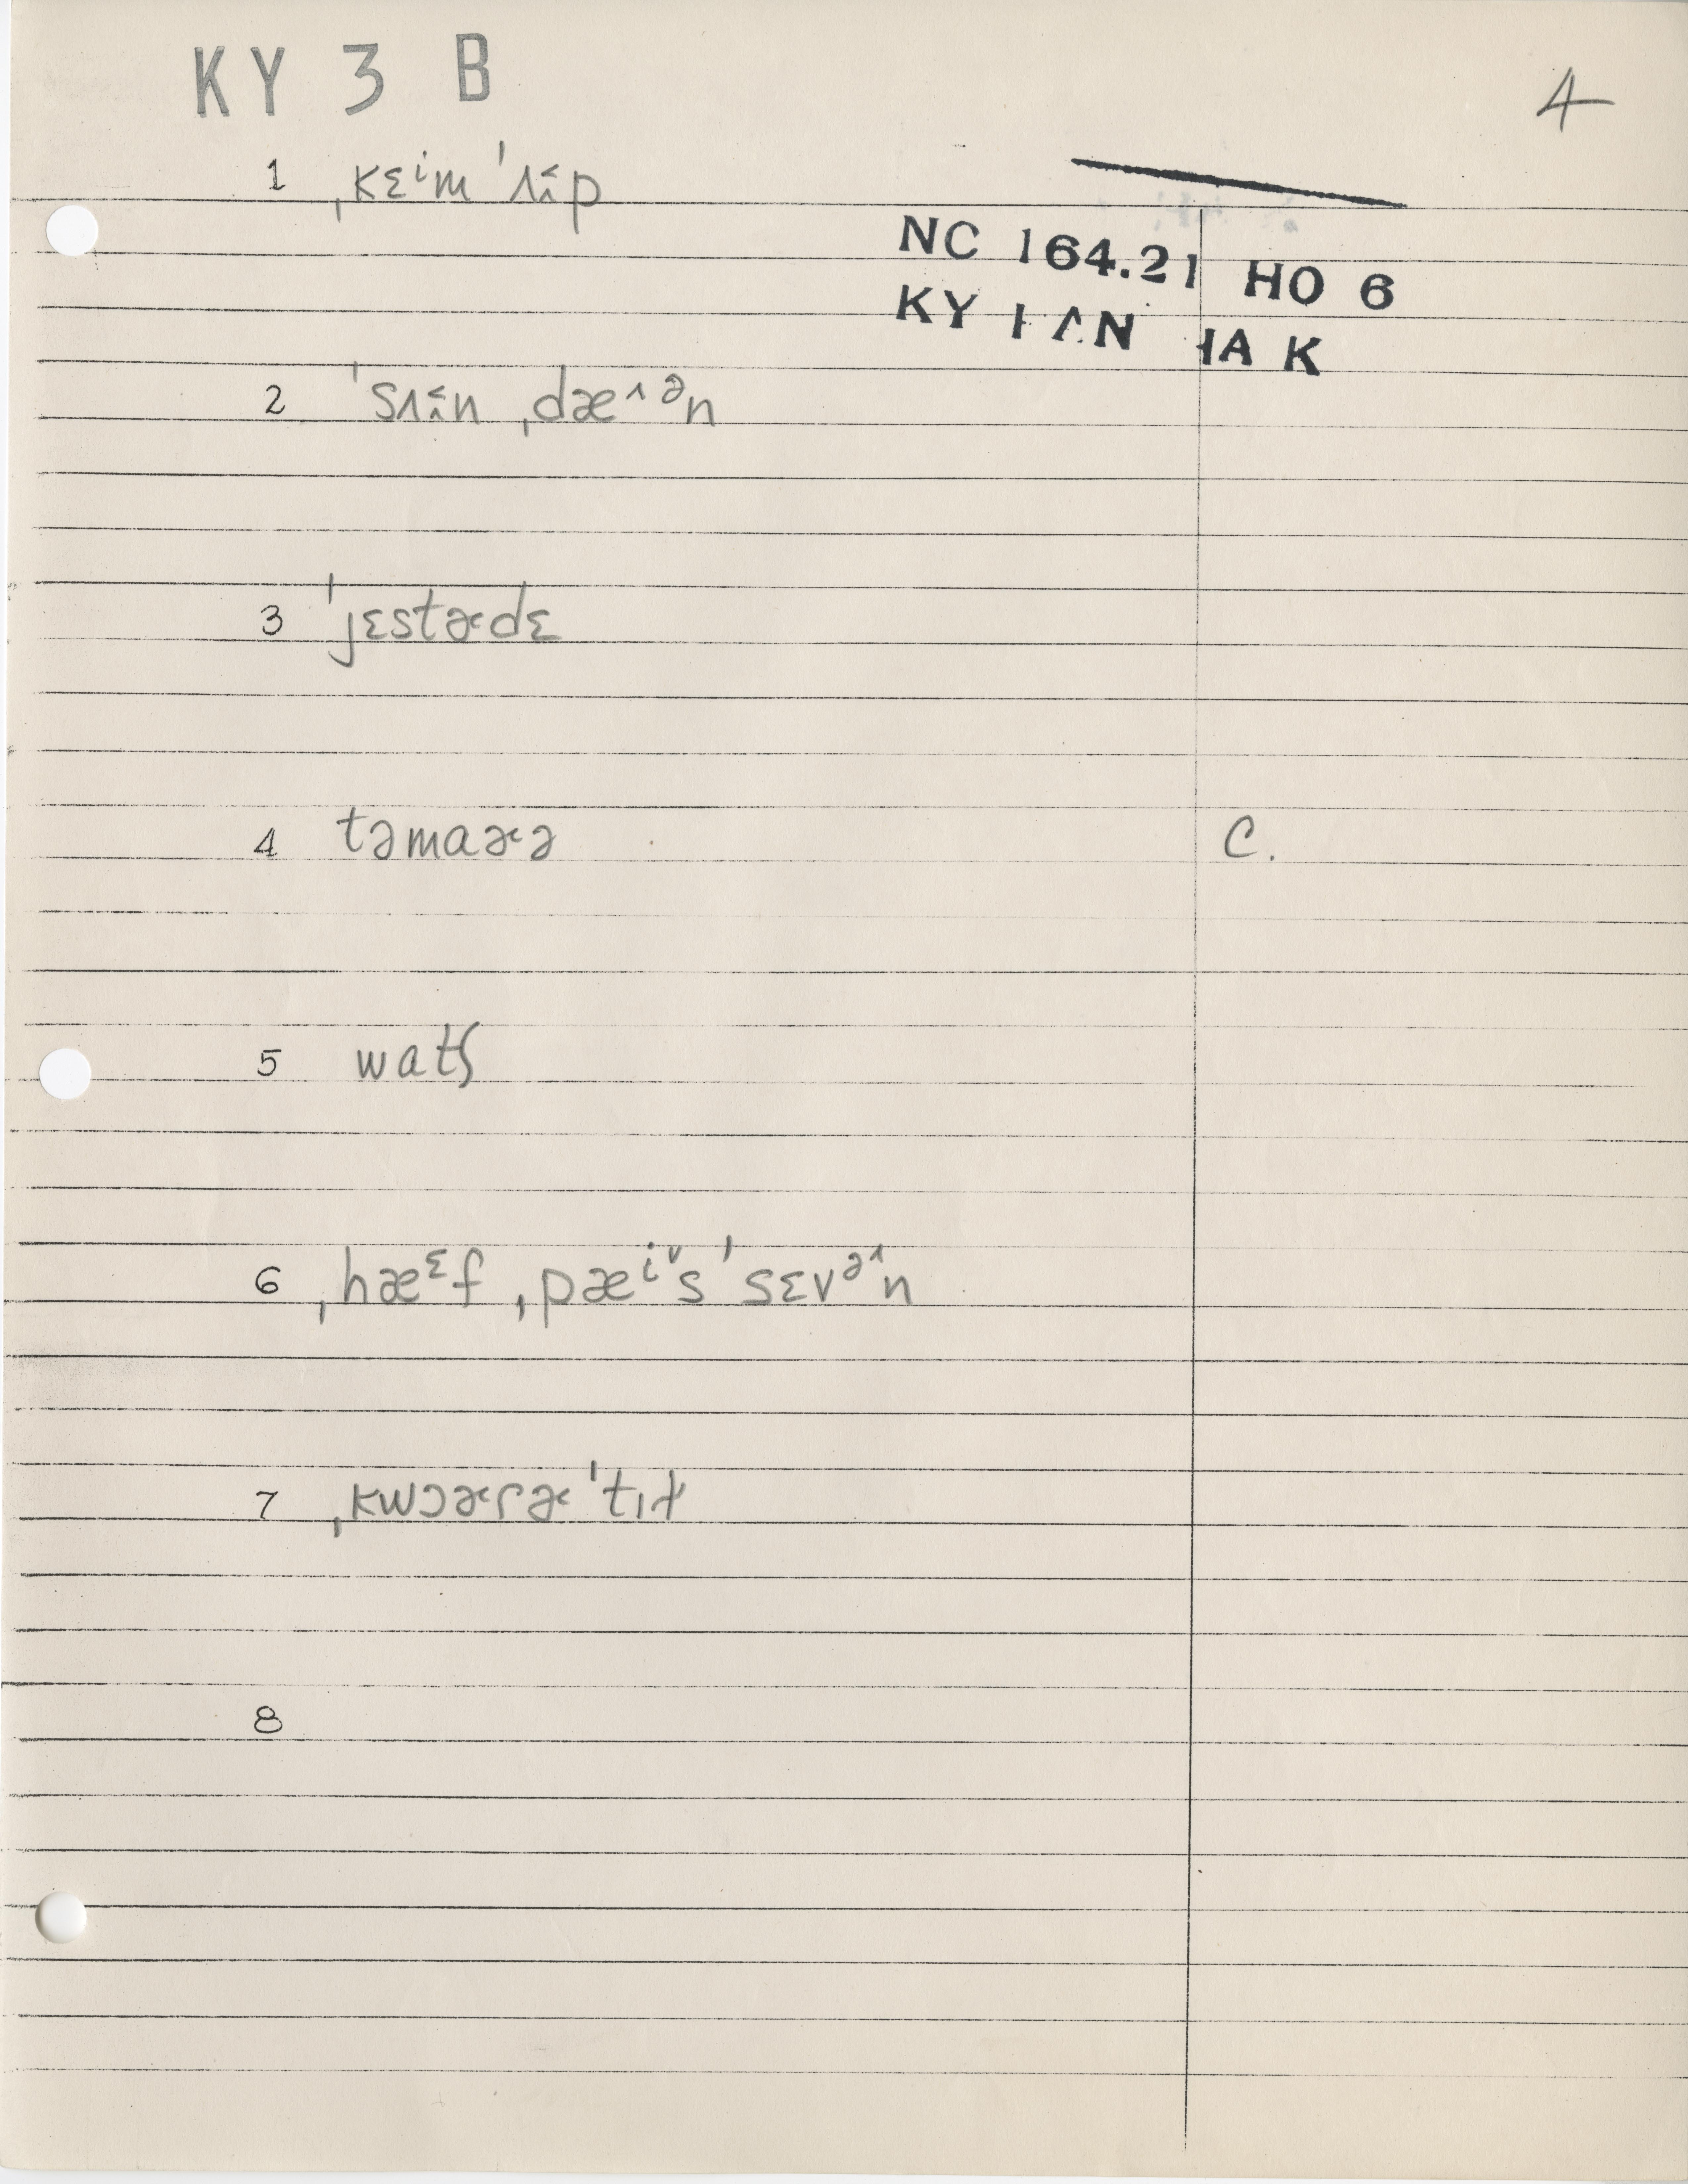 KY 3 B
4
1 ˌkɛⁱm ˈʌp
NC 164.21 HO 6
KY
2 ˈsʌn ˌdæ^ᵊn
3 ˈjɛstɚdɛ
4 təmaɚə C.
5 watʃ
6 ˌhæᵋf ˌpæⁱˇs ˈsɛvᵊ^n
7 ˌkwɔɚɾɚ ˈtɪɫ
8